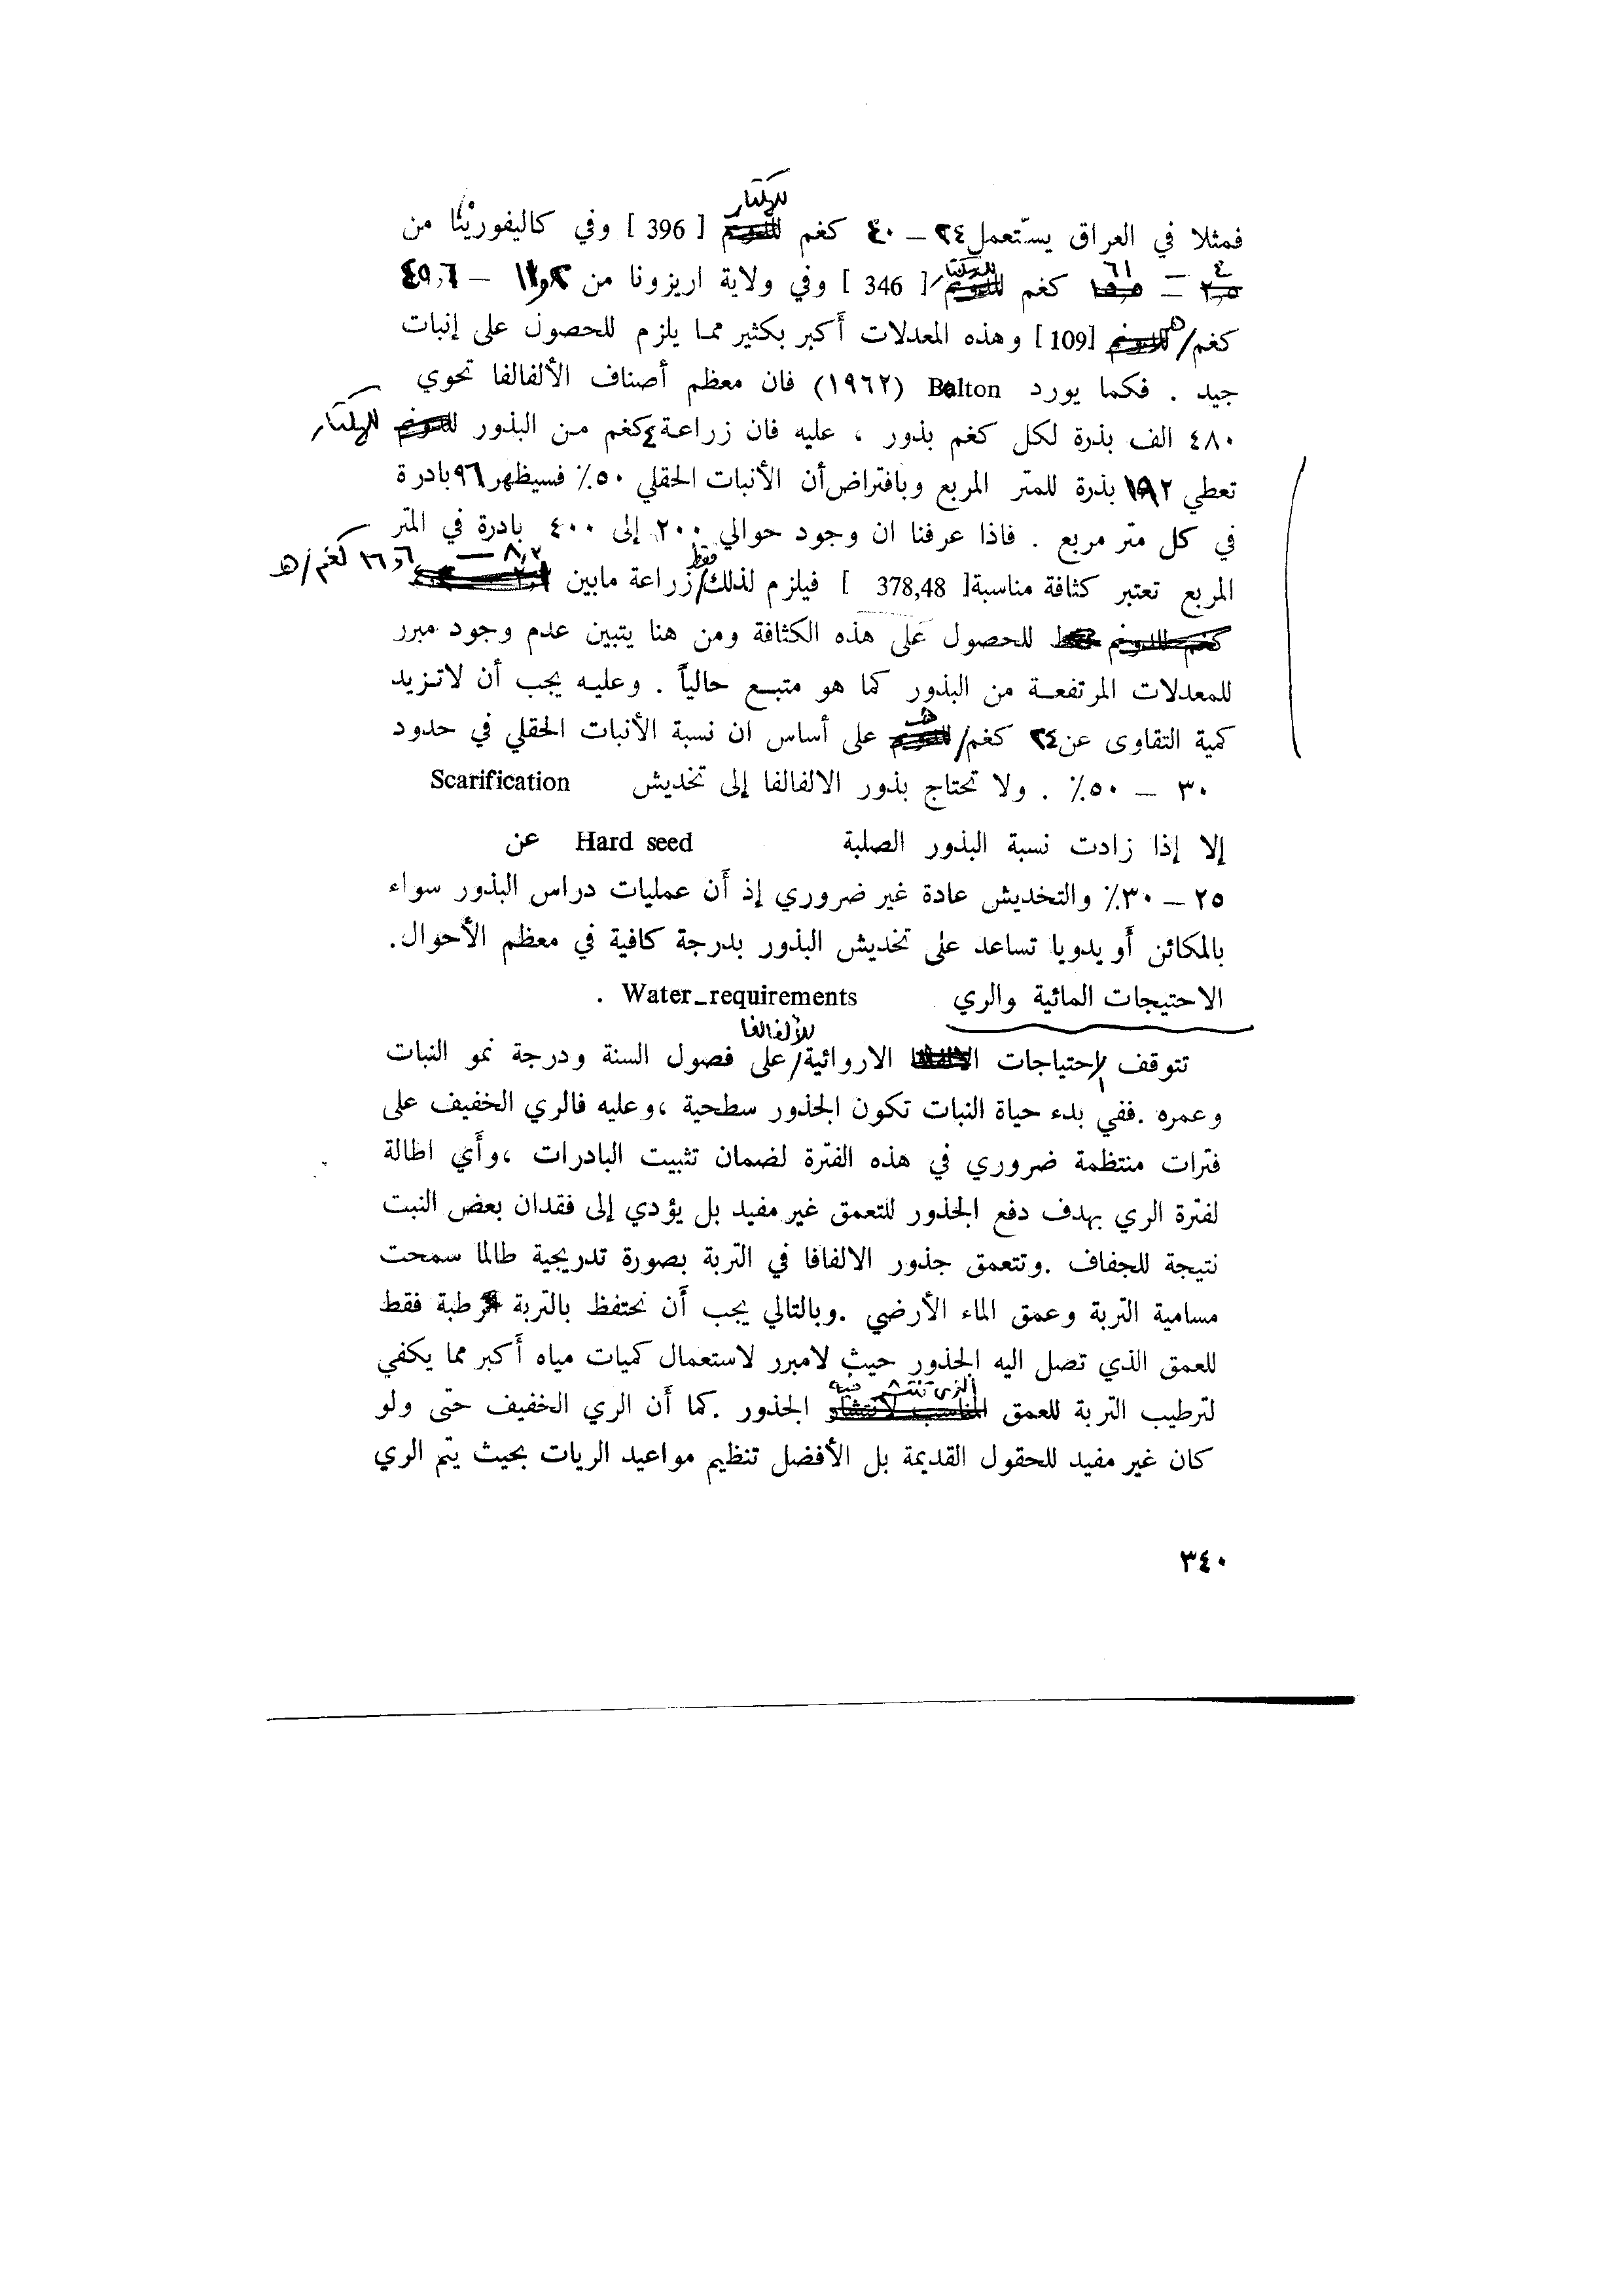 فمثلا في العراق يستعمل ٢٤ – ٤٠ كغم للهكتار [ 396 ] وفي كاليفورنيا من
٤ – ٦١ كغم [ 346 ] وفي ولاية اريزونا من
كغم/هـ [109] وهذه المعدلات أكبر بكثير مما يلزم للحصول على إنبات
جيد . فكما يورد Bolton (١٩٦٢) فان معظم أصناف الألفالفا تحوي
٤٨٠ الف بذرة لكل كغم بذور ، عليه فان زراعة ٤ كغم من البذور للهكتار
تعطي ١٩٢ بذرة للمتر المربع وبافتراض أن الأنبات الحقلي ٥٠٪ فسيظهر ٩٦ بادرة
في كل متر مربع . فاذا عرفنا ان وجود حوالي ٢٠٠ إلى ٤٠٠ بادرة في المتر
المربع تعتبر كثافة مناسبة [ 378,48 ] فيلزم لذلك فقط زراعة مابين ٨,٢ – ١٦,٦ كغم/هـ
للحصول على هذه الكثافة ومن هنا يتبين عدم وجود مبرر
للمعدلات المرتفعة من البذور كما هو متبع حالياً . وعليه يجب أن لاتزيد
كمية التقاوى عن ٢٤ كغم/هـ على أساس ان نسبة الأنبات الحقلي في حدود
٣٠ – ٥٠٪ . ولا تحتاج بذور الالفالفا إلى تخديش Scarification
إلا إذا زادت نسبة البذور الصلبة Hard seed عن
٢٥ – ٣٠٪ والتخديش عادة غير ضروري إذ أن عمليات دراس البذور سواء
بالمكائن أو يدويا تساعد على تخديش البذور بدرجة كافية في معظم الأحوال.
الاحتيجات المائية والري Water_requirements .
تتوقف إحتياجات الاروائية/ للألفالفا على فصول السنة ودرجة نمو النبات
وعمره .ففي بدء حياة النبات تكون الجذور سطحية ،وعليه فالري الخفيف على
فترات منتظمة ضروري في هذه الفترة لضمان تثبيت البادرات ،وأي اطالة
لفترة الري بهدف دفع الجذور للتعمق غير مفيد بل يؤدي إلى فقدان بعض النبت
نتيجة للجفاف .وتتعمق جذور الالفافا في التربة بصورة تدريجية طالما سمحت
مسامية التربة وعمق الماء الأرضي .وبالتالي يجب أن نحتفظ بالتربة رطبة فقط
للعمق الذي تصل اليه الجذور حيث لامبرر لاستعمال كميات مياه أكبر مما يكفي
لترطيب التربة للعمق الذي تنتشر فيه الجذور .كما أن الري الخفيف حتى ولو
كان غير مفيد للحقول القديمة بل الأفضل تنظيم مواعيد الريات بحيث يتم الري
٣٤٠